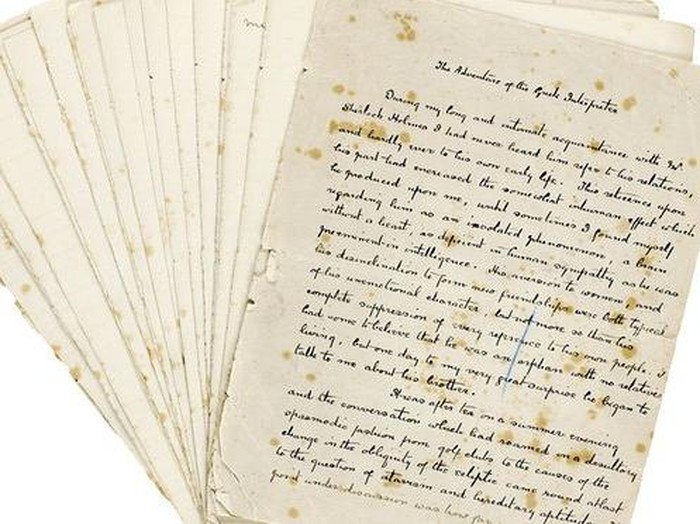 me
The Adventure of the Greek Interpreter
During my long and intimate acquaintance with Mr.
Sherlock Holmes I had never heard him refer to his relations
and hardly ever to his own early life. This reticence upon
his part had increased the somewhat inhuman effect which
he produced upon me, until sometimes I found myself
regarding him as an insolated phenomenon, a brain
without a heart, as deficient in human sympathy as he was
preeminent in intelligence. His aversion to women, and
his disinclination to form new friendships were both typical
of his unemotional character, but not more so than his
complete suppression of every reference to his own people. I
had come to believe that he was an orphan with no relatives
living, but one day to my very great surprise he began to
talk to me about his brother.
It was after tea on a summer evening
and the conversation which had roamed on a desultory
spasmodic fashion from golf clubs to the causes of the
change in the obliquity of the ecliptic came round at last
to the question of atavism and hereditary aptitudes
point under discussion was how